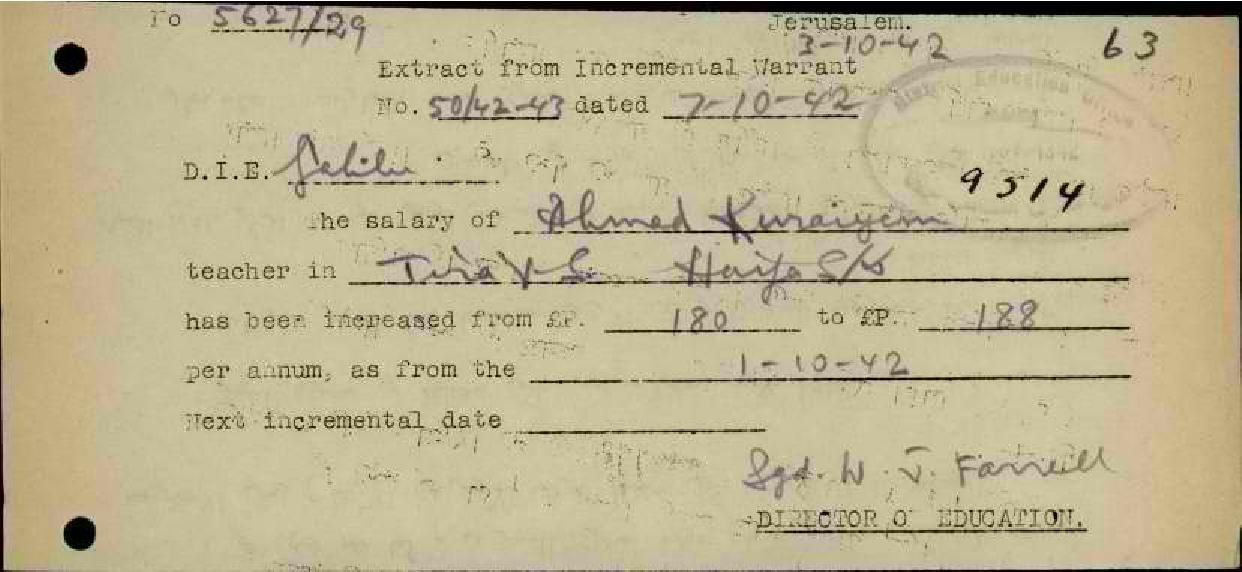 No 5627/29 Jerusalem.
3-10-42 63
Extract from Incremental Warrant
No. 50/42-43 dated 7-10-42
D.I.E. Galilee
9514
The salary of Ahmad Kuraiyem
teacher in Tira V S Haifa S/D
has been increased from £P. 180 to £P. 188
per annum, as from the 1-10-42
Next incremental date
Sgd. W. J. Farrell
DIRECTOR OF EDUCATION.